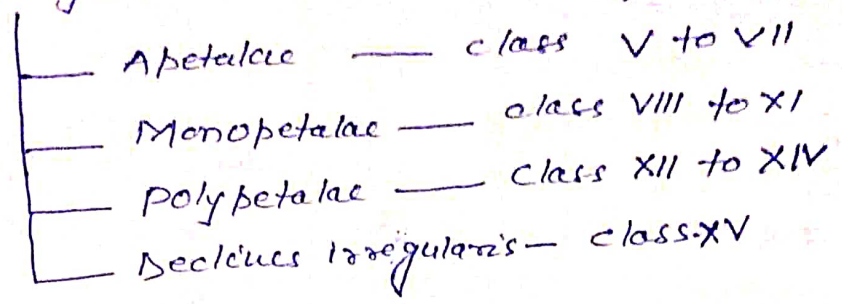 Apetalae — class V to VII
Monopetalae — class VIII to XI
Polypetalae — class XII to XIV
Declines irregularis — class.XV